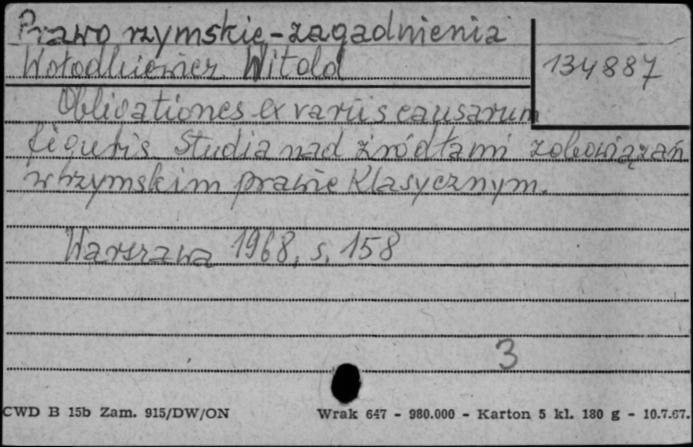 Prawo rzymskie - zagadnienia
Wołodkiewicz Witold
134887
Obligationes ex variis causarum
figuris Studia nad źródłami zobowiązań
w rzymskim prawie klasycznym.
Warszawa 1968, s. 158
3
CWD B 15b Zam. 915/DW/ON
Wrak 647 - 980.000 - Karton 5 kl. 180 g - 10.7.67.